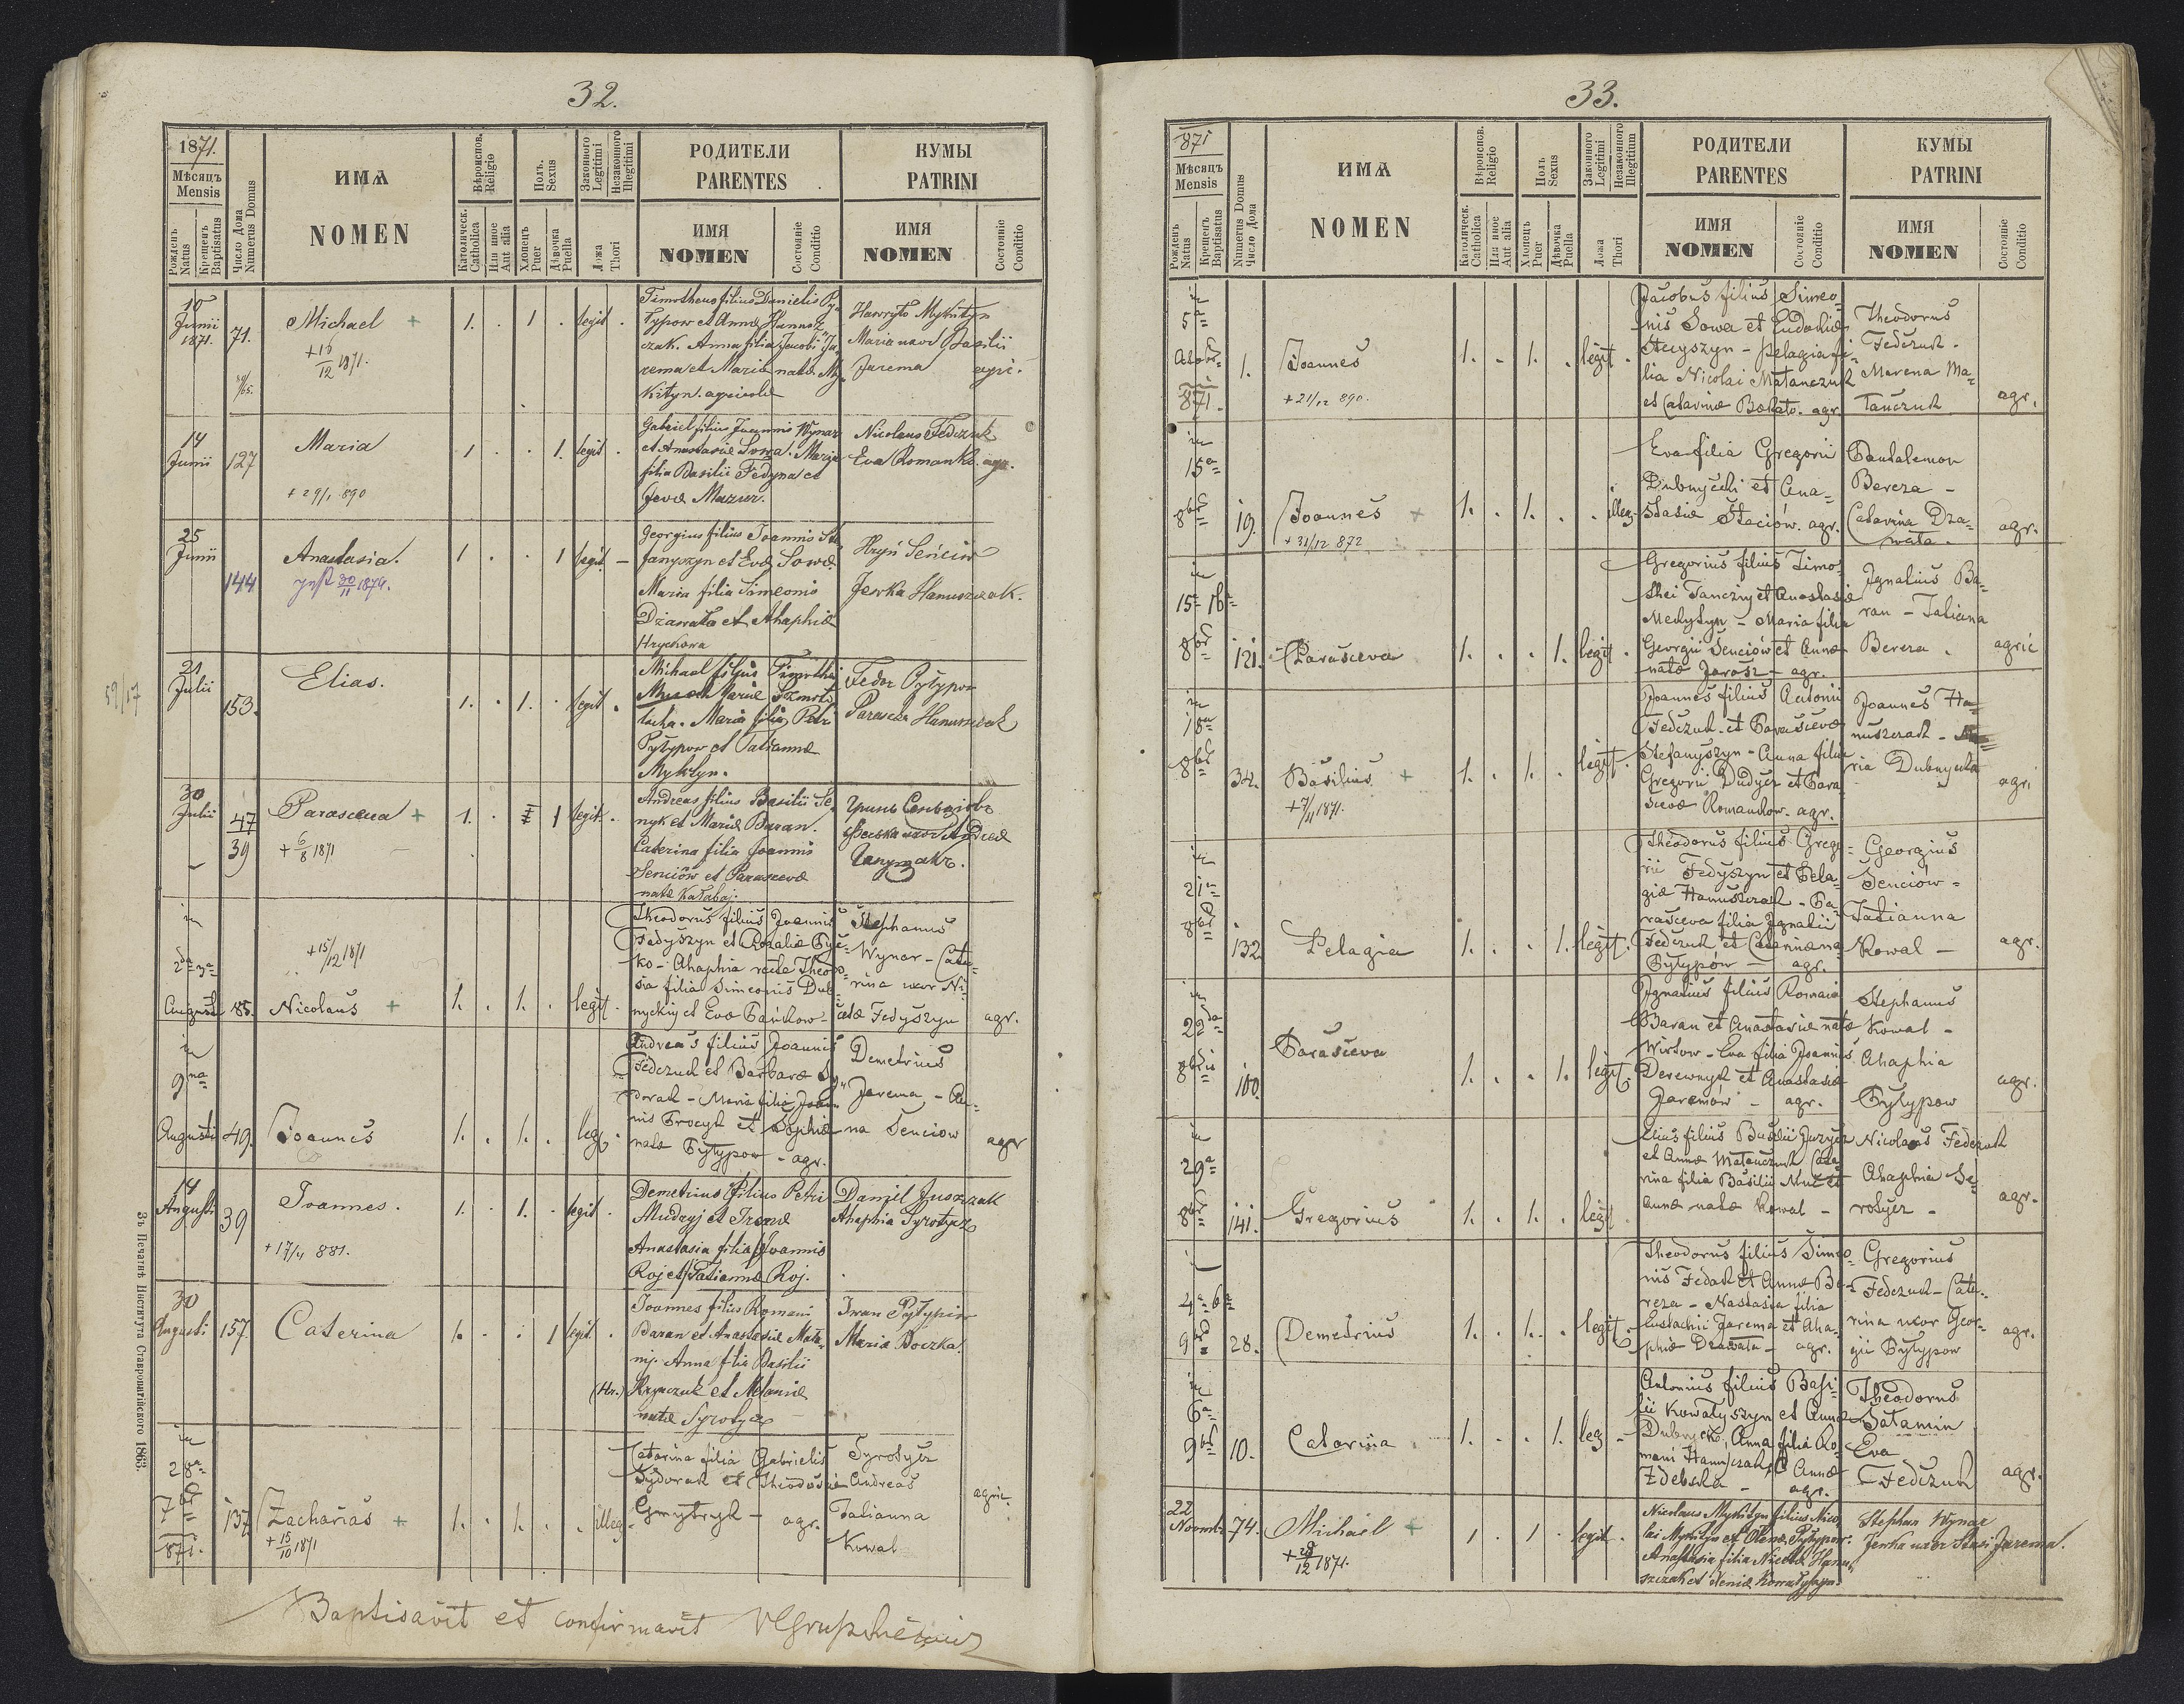 32.
1871.
Мѣсяцъ
Mensis
Рожденъ
Natus
Крещенъ
Baptisatus
Число Дома
Numerus Domus
ИМѦ
NOMEN
Вѣроиспов.
Religio
Католическ.
Catholica
Или иное
Aut alia
Полъ.
Sexus
Хлопецъ
Puer
Дѣвочка
Puella
Законного
Legitimi
Незаконного
Illegitimi
Ложа
Thori
РОДИТЕЛИ
PARENTES
ИМЯ
NOMEN
Состояніе
Conditio
КУМЫ
PATRINI
ИМЯ
NOMEN
Состояніе
Conditio
10
Junii
1871.
71.
Michael +
+ 16/12 1871.
1. . 1 . legit .
Timotheus filius Danielis Py-
typow et Anna Hanusz-
czak. Anna filia Jacobi Ja-
rema et Maria nata My-
kityn. agricolæ
Hawryło Mykityn
Maria uxor Basilii
Jarema agri.
14
Junii
127
Maria
+ 29/1 890
1 . . 1. legit .
Gabriel filius Joannis Wynar
et Anastasiæ Sowa. Maria
filia Basilii Fedyna et
Jevæ Mazur.
Nicolaus Fedczuk
Eva Romanko. agr.
25
Junii
144
Anastasia.
30/11 1874.
1 . . 1 legit. –
Georgius filius Joannis Ste-
fanyszyn et Evæ Sowæ
Maria filia Simeonis
Dzawała et Ahaphiæ
Hryckowa
Hryń Seńciw
Jewka Hanuszczak.
59/17
21
Julii
153.
Elias.
1. . 1. . legit .
Michael filius Timothei
Maria filia Petri
Pyłypow et Tatiannæ
Mykityn.
Fedor Pyłypow
Parascka Hanuszczak
30
Julii
47
39
Parasceva +
+ 6/8 1871
1. . 1 legit. .
Andreas filius Basilii Se-
nyk et Mariæ Baran.
Caterina filia Joannis
Senciów et Parascevæ
natæ Kałabaj.
Гринь Сеньковъ
in
2da 3a
August
85.
+ 15/12 1871
Nicolaus +
1. . 1. . legit .
Theodorus filius Joannis
Fedyszyn et Rozaliæ
ko – Ahaphia recte Theodo-
sia filia Simeonis Dub-
nyckiy et Evæ Pańkow –
Stephanus
Wynar – Cate-
rina uxor Ni-
cetæ Fedyszyn agr.
in
9na
Augusti
49.
Joannes
1. . 1. . leg .
Andreas filius Joannis
Fedczuk et Barbaræ Sy-
dorak – Maria filia Joan-
nis Procyk et Sophiæ
natæ Pyłypow – agr.
Demetrius
Jarema – An-
na Senciow agr
14
Augusti
39
Joannes.
+ 17/4 881.
1. . 1. . legit .
Demetrius filius Petri
Mudryj et Irenæ
Anastasia filia Joannis
Roj et Tatiannæ Roj.
Daniil Juszczak
Ahaphia Syrotycz
30
Augusti
157
Caterina
1. . . 1 legit. .
Joannes filius Romani
Baran et Anastasiæ Mała-
nij. Anna filia Basilii
(Hr.) Hrynczuk et Melaniæ
natæ Syrotycz
Iwan Pyłypiw
Maria Boczka.
in
28a
7br
871.
137
Zacharias +
+ 15/10 1871
1. . 1. . . illeg.
Catarina filia Gabrielis
Sydorak et Theodosiæ
Gmytryk – agr.
Syrotycz
Andreas
Tatianna
Kowal
agric.
Baptisavit et confirmavit
Зъ Печатнѣ Института Ставропигійского 1863.
33.
871
Мѣсяцъ
Mensis
Рожденъ
Natus
Крещенъ
Baptisatus
Numerus Domus
Число Дома
ИМѦ
NOMEN
Вѣроиспов.
Religio
Католическ.
Catholica
Или иное
Aut alia
Полъ
Sexus
Хлопецъ
Puer
Дѣвочка
Puella
Законного
Legitimi
Незаконного
Illegitimum
Ложа
Thori
РОДИТЕЛИ
PARENTES
ИМЯ
NOMEN
Состояніе
Conditio
КУМЫ
PATRINI
ИМЯ
NOMEN
Состояніе
Conditio
in
5a
871.
1.
Joannes
+ 21/12 890.
1. . 1. . legit .
Jacobus filius Simeo-
nis Sowa et Eudochiæ
Stecyszyn – Pelagia fi-
lia Nicolai Matanczuk
et Catarinæ agr.
Theodorus
Fedczuk.
Marena Ma-
tanczuk agr.
in
15a
8br
19.
Joannes +
+ 31/12 872
1. . 1. . . illeg.
Eva filia Gregorii
Dubnycki et Ana-
stasiæ Staciów. agr.
Pantalemon
Bereza –
Catarina Dza-
wała. agr.
in
15a 16a
8br
121.
Parasceva
1. . . 1. legit .
Gregorius filius Timo-
thei Tanczij et Anastasiæ
Mekytyn – Maria filia
Georgii Senciów et Annæ
natæ Jarosz – agr.
Ignatius Ba-
ran – Tatiana
Bereza. agric
in
18a
8br
34.
Basilius +
+ 7/11 1871.
1. . 1. . legit.
Joannes filius Antonii
Fedczuk et Parascevæ
Stefanyszyn – Anna filia
Gregorii Dudycz et Para-
scevæ Romankow. agr.
Joannes Ha-
nuszczak –
ria Dubnycka
agri
in
21a
8br
132.
Pelagia
1. . . 1. legit.
Theodorus filius Grego-
rii Fedyszyn et Pela-
giæ Hanuszczak – Pa-
rasceva filia Ignatii
Fedczuk et Catarinæ na.
Pyłypów – agr.
Georgius
Senciów –
Tatianna
Kowal – agr.
in
22da
8bris
100.
Parasceva
1. . . 1. legit.
Ignatius filius Romani
Baran et Anastasiæ natæ
Wirtow – Eva filia Joannis
Derewnyk et Anastasiæ
Jaremów – agr.
Stephanus
Kowal –
Ahaphia
Pyłypow
agr.
in
29a
8br
141.
Gregorius
1. . 1. . legit
Elias filius Basilii Jurycz
et Annæ Matanczuk Cate-
rina filia Basilii et
Annæ natæ Kowal –
Nicolaus Fedczuk
Ahaphia Se-
rotycz – agr.
4a 6a
9br
28.
Demetrius
1. . 1. . legit.
Theodorus filius Simeo-
nis Fedak et Annæ Be-
reza – Nastasia filia
Eustachii Jarema et Aha-
phiæ Dzawała – agr.
Gregorius
Fedczuk – Cate-
rina uxor Geor-
gii Pyłypow
agr.
in
6a
9br
10.
Catarina
1. . . 1. leg .
Antonius filius Basi-
lii Kowałyszyn et Annæ
Dubnycka, Anna filia Ro-
mani Hanuszczak, et Annæ
Zdebska – agr.
Theodorus
Sałamin
Eva
Fedczuk agr.
22
Novmbr
74.
Michael +
+ 28/12 1871.
1 . 1 . legit .
Nicolaus Mykityn filius Nico-
lai Mykityn et Olenæ Pyłypow.
Anastasia filia Nicolai Hanu-
szczak et Xeniæ Kowałyszyn.
Stephan Wynar
Jewka uxor Stasi Jarema.